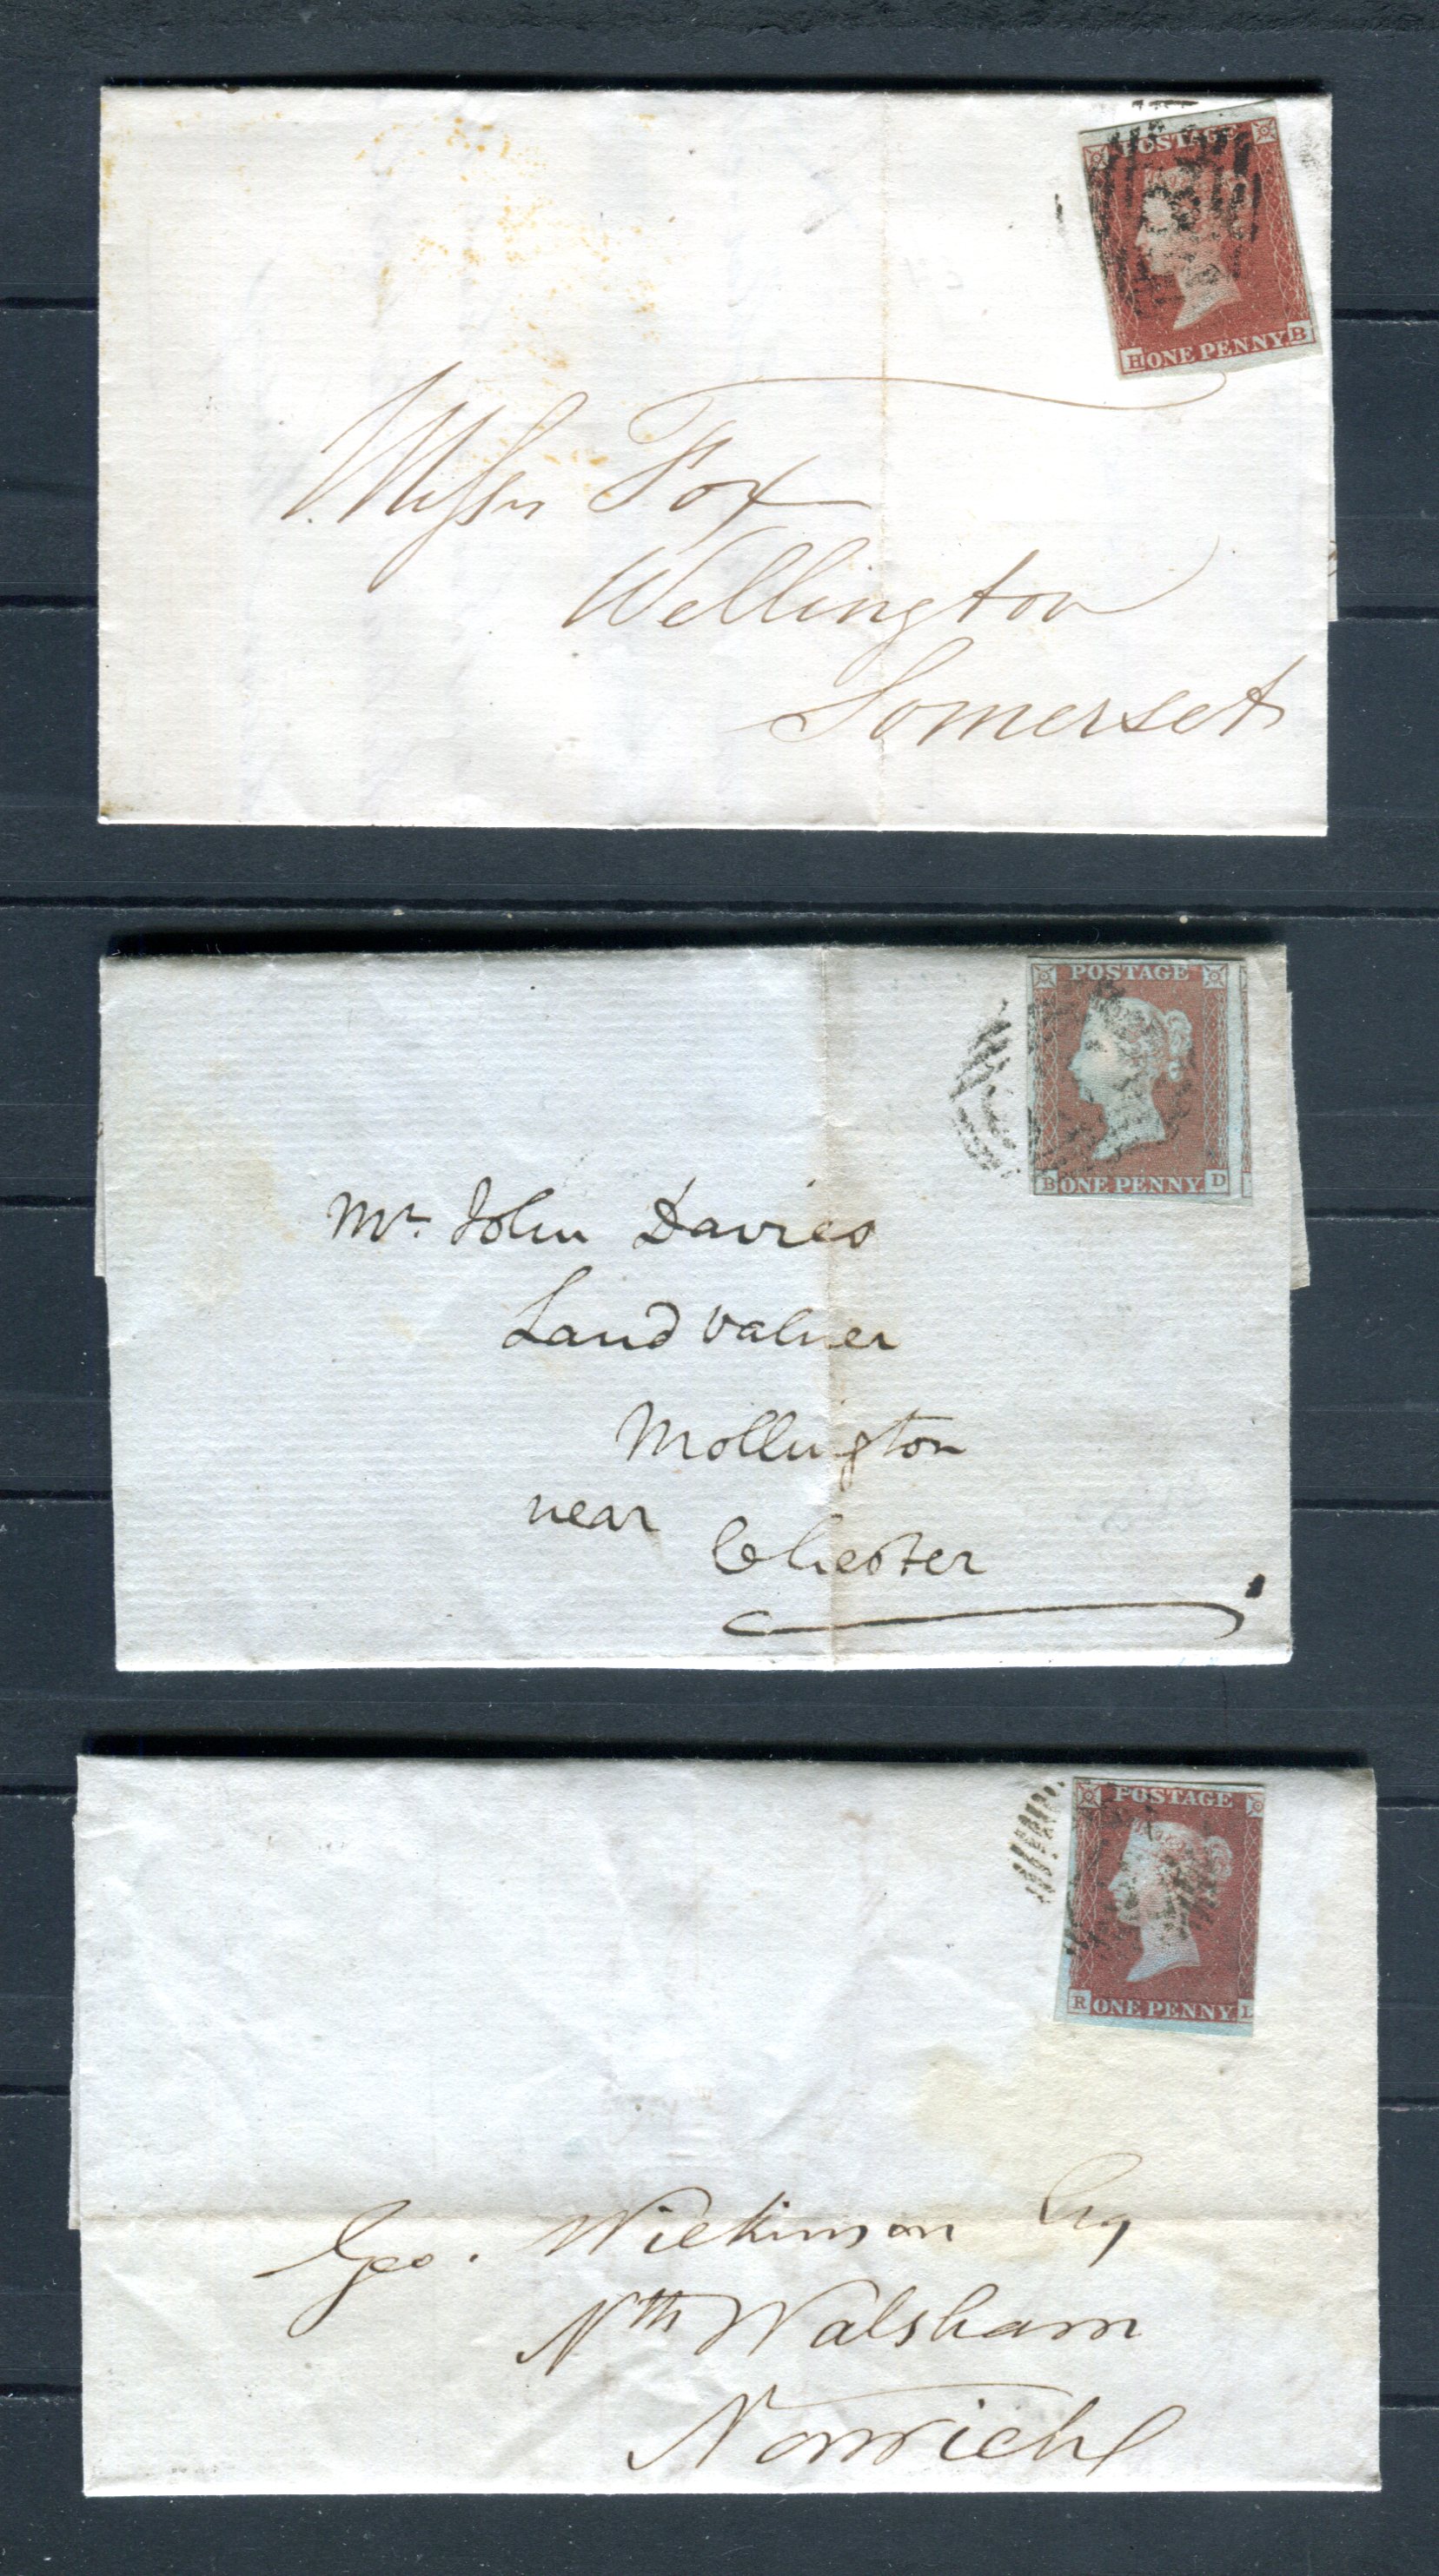 POSTAGE
H ONE PENNY. B
Messrs Fox
Wellington
Somerset
POSTAGE
B ONE PENNY. D
Mr. John Davies
Land Valuer
Mollington
near
Chester
POSTAGE
R ONE PENNY. L
Geo. Wilkinson Esq
Nth Walsham
Norwich